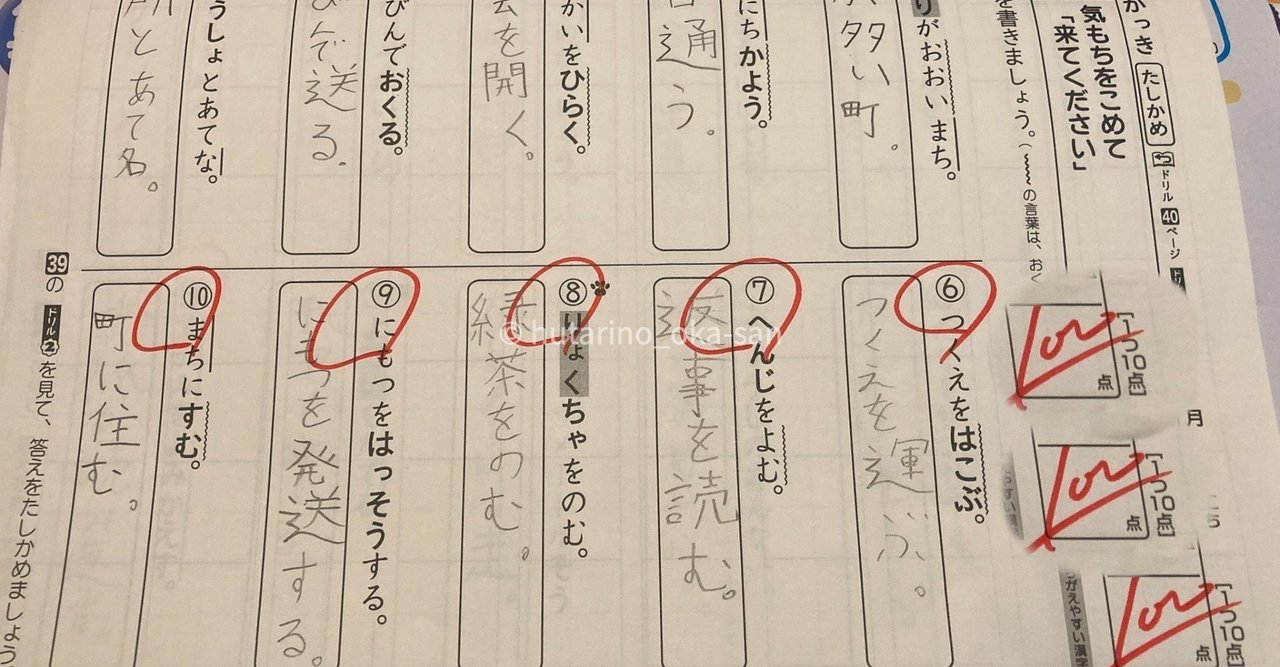 がっき たしかめ ドリル 40 ページ
気もちをこめて
「来てください」
を書きましょう。(の言葉は、おく
りがおおいまち。
多い町。
にちかよう。
通う。
かいをひらく。
を開く。
びんでおくる。
びんで送る。
うしょとあてな。
所とあて名。
[1つ10点]
点
月
⑥ つくえをはこぶ。
つくえを運ぶ。
⑦ へんじをよむ。
返事を読む。
⑧ りょくちゃをのむ。
緑茶をのむ。
⑨ にもつをはっそうする。
にもつを発送する。
⑩ まちにすむ。
町に住む。
39の ドリル2を見て、答えをたしかめましょう
[1つ10点]
点
[1つ10点]
点
がえやすい漢字
© hutarino_oka-san